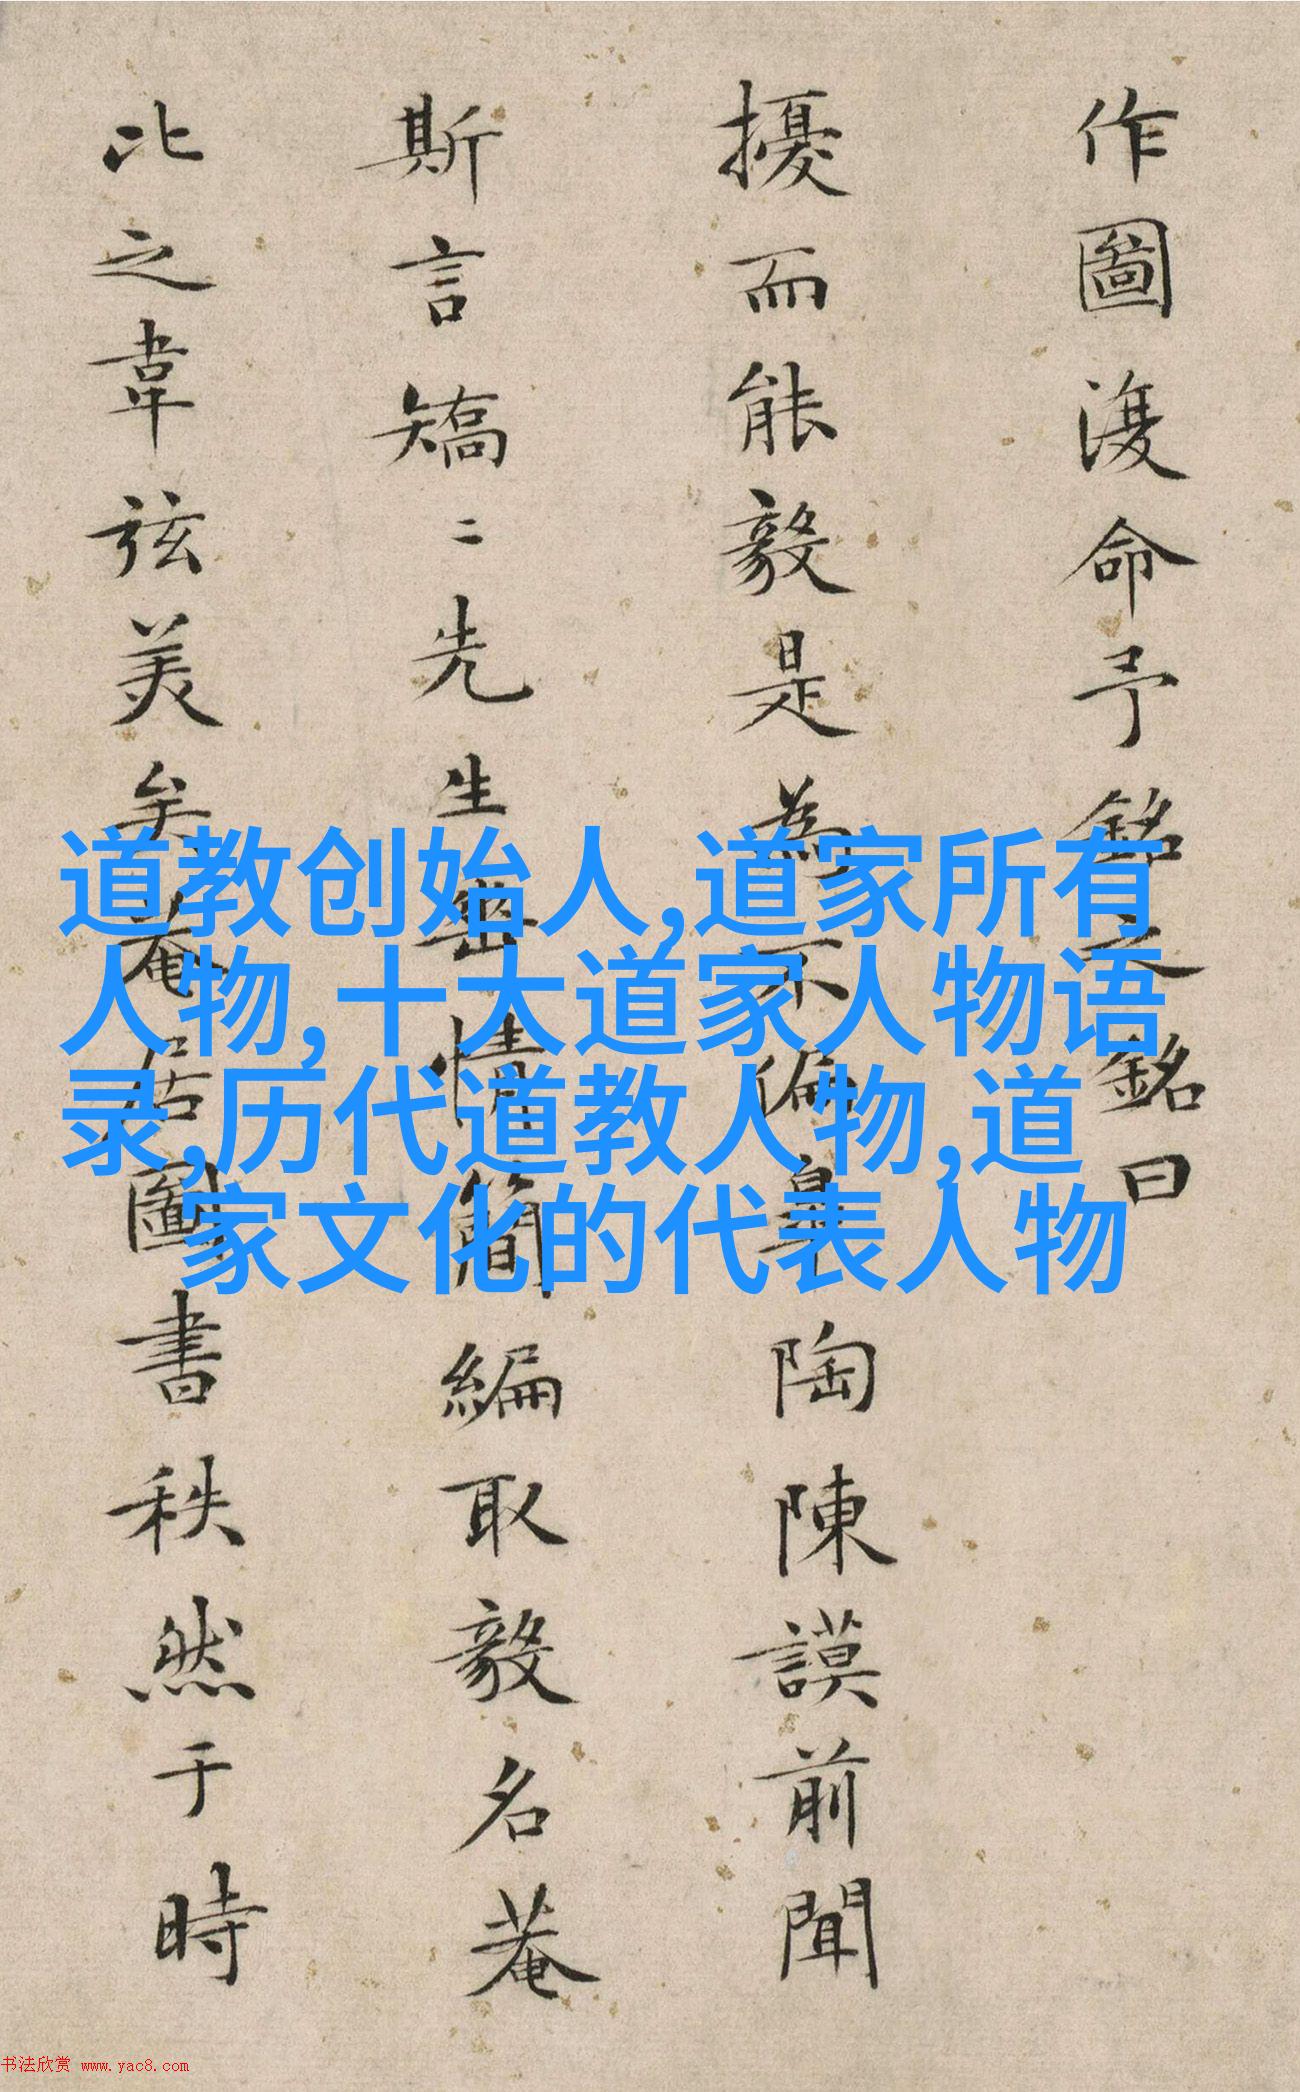 作圖復命予銘之銘曰
擾而能毅是為不偏皋陶陳謨前聞
斯言矯二先生無情簡編取毅名菴
比之韋弦美矣菴居圖書秩然于時
道教创始人,道家所有
人物,十大道家人物语
录,历代道教人物,道
家文化的代表人物
书法欣赏 www.yac8.com